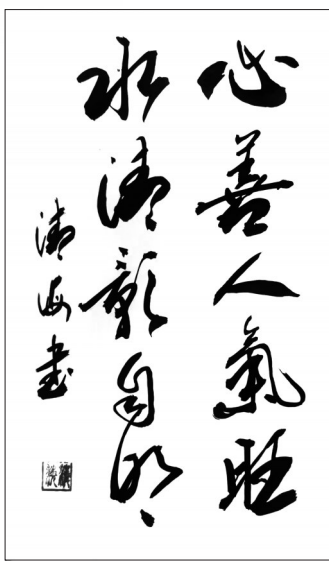 心善人氣旺
水清影自明
清海書